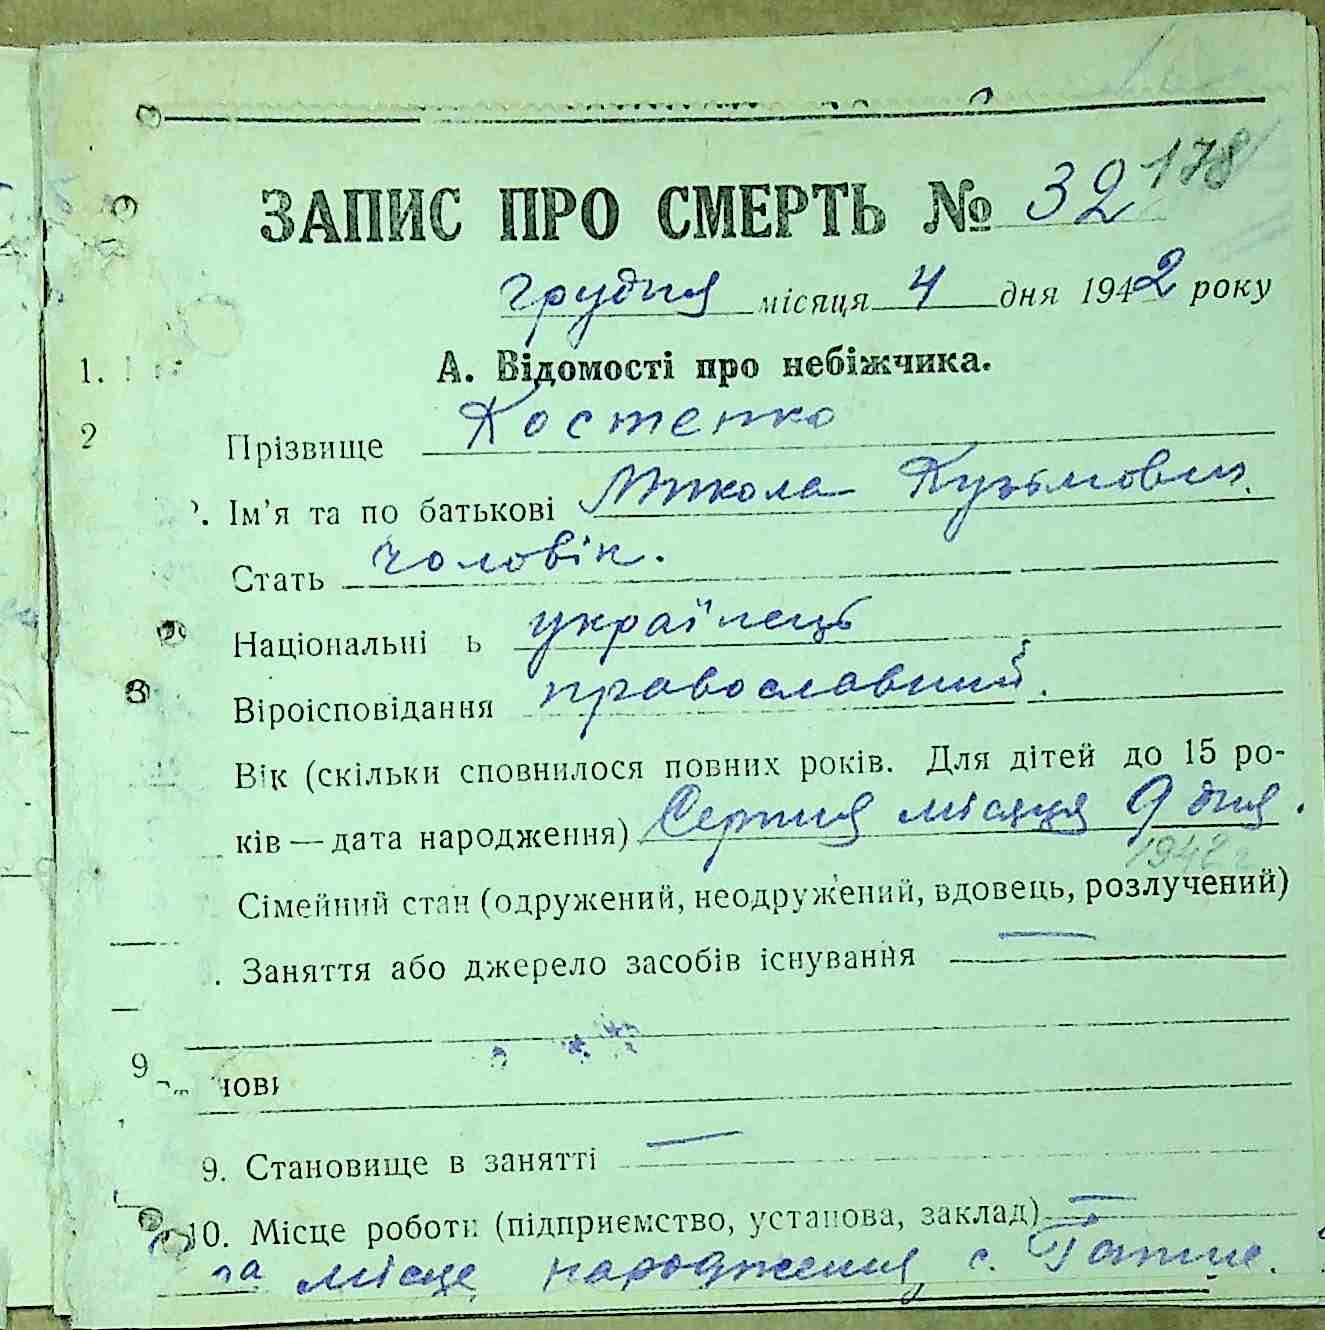 ЗАПИС ПРО СМЕРТЬ № 32 178
грудня місяця 4 дня 1942 року
1.
А. Відомості про небіжчика.
2
Прізвище Костенко
Ім'я та по батькові Микола Кузьмович.
Стать чоловік.
Національні ь українець
Віроісповідання православний.
Вік (скільки сповнилося повних років. Для дітей до 15 ро-
ків — дата народження) Серпня місяця 9 дня.
1942 г
Сімейний стан (одружений, неодружений, вдовець, розлучений)
. Заняття або джерело засобів існування —
9
нові
9. Становище в занятті —
10. Місце роботи (підприємство, установа, заклад) —
та місце народження с. Гатне.